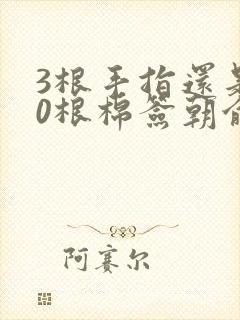 3根手指還是
0根棉簽朝俞
阿赛尔